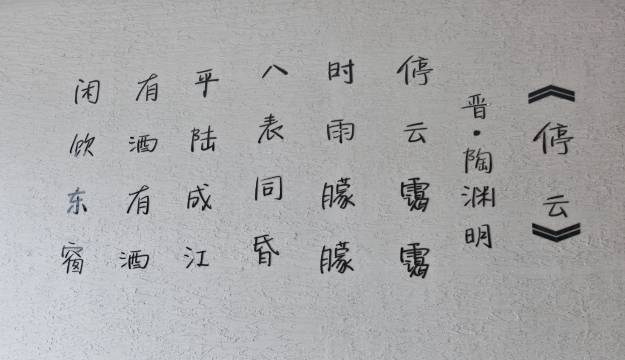 《停云》
晋·陶渊明
停云霭霭
时雨朦朦
八表同昏
平陆成江
有酒有酒
闲饮东窗